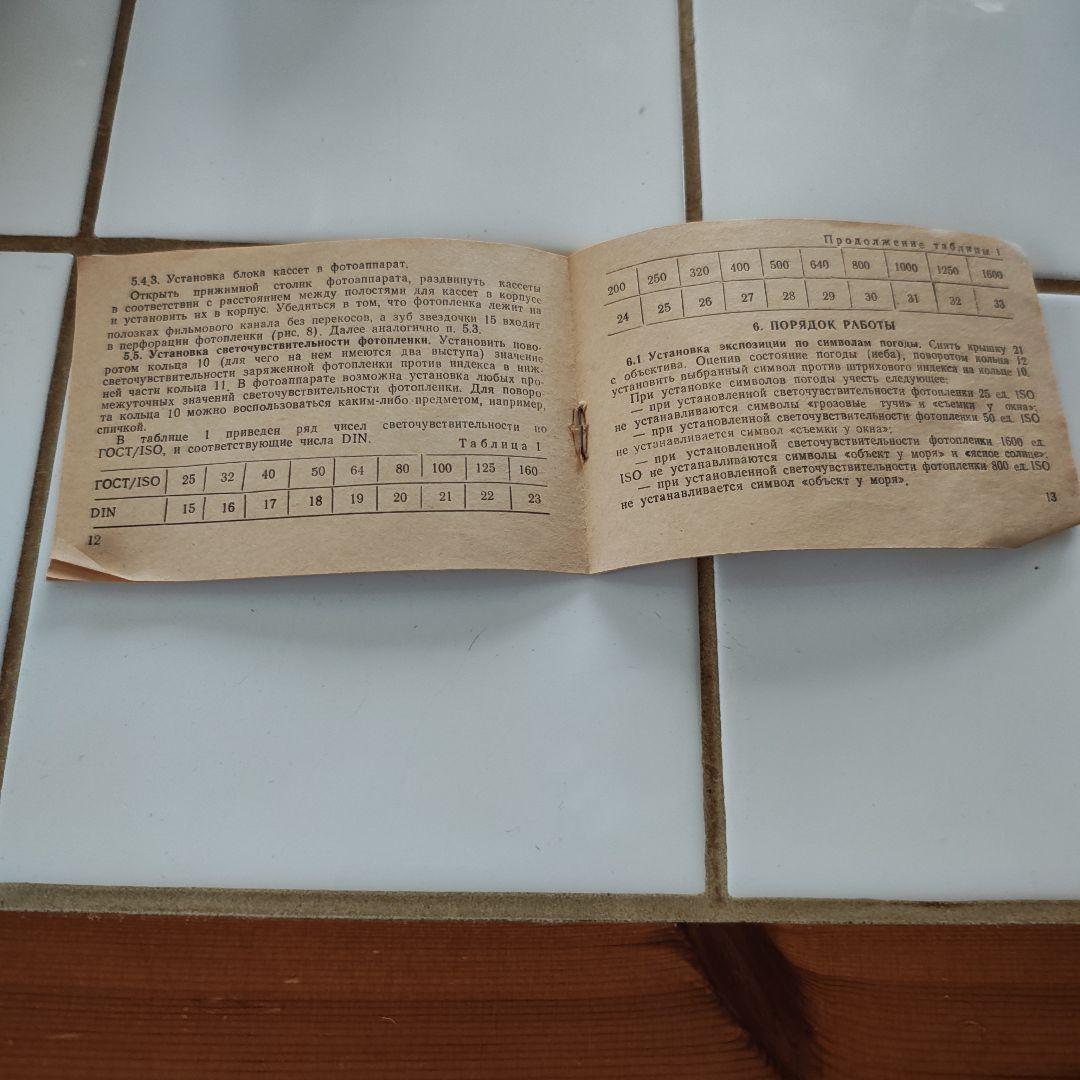 5.4.3. Установка блока кассет в фотоаппарат.
Открыть прижимной столик фотоаппарата, раздвинуть кассеты
в соответствии с расстоянием между полостями для кассет в корпусе
и установить их в корпус. Убедиться в том, что фотопленка лежит на
полозках фильмового канала без перекосов, а зуб звездочки 15 входит
в перфорации фотопленки (рис. 8). Далее аналогично п. 5.3.
5.5. Установка светочувствительности фотопленки. Установить пово-
ротом кольца 10 (для чего на нем имеются два выступа) значение
светочувствительности заряженной фотопленки против индекса в ниж-
ней части кольца 11. В фотоаппарате возможна установка любых про-
межуточных значений светочувствительности фотопленки. Для поворо-
та кольца 10 можно воспользоваться каким-либо предметом, например,
спичкой.
В таблице 1 приведен ряд чисел светочувствительности по
ГОСТ/ISO, и соответствующие числа DIN.
Таблица 1
ГОСТ/ISO 25 32 40 50 64 80 100 125 160
DIN 15 16 17 18 19 20 21 22 23
12
Продолжение таблицы 1
200 250 320 400 500 640 800 1000 1250 1600
24 25 26 27 28 29 30 31 32 33
6. ПОРЯДОК РАБОТЫ
6.1 Установка экспозиции по символам погоды. Снять крышку 21
с объектива. Оценив состояние погоды (неба), поворотом кольца 12
установить выбранный символ против штрихового индекса на кольце 10.
При установке символов погоды учесть следующее:
— при установленной светочувствительности фотопленки 25 ед. ISO
не устанавливаются символы «грозовые тучи» и «съемки у окна»;
— при установленной светочувствительности фотопленки 50 ед. ISO
не устанавливается символ «съемки у окна»;
— при установленной светочувствительности фотопленки 1600 ед.
ISO не устанавливаются символы «объект у моря» и «ясное солнце»;
— при установленной светочувствительности фотопленки 800 ед. ISO
не устанавливается символ «объект у моря».
13